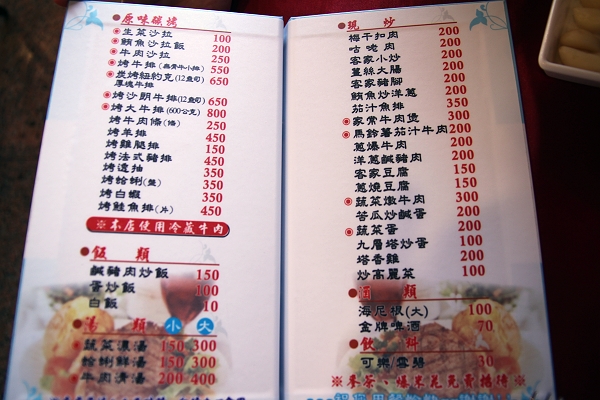 原味碳烤
◉生菜沙拉 100
◉鮪魚沙拉飯 200
◉牛肉沙拉 250
◉烤牛排(無骨牛小排) 550
◉炭烤紐約克(12盎司) 650
厚塊牛排
◉烤沙朗牛排(12盎司) 650
◉烤大牛排(600公克) 800
烤牛肉條(條) 250
烤羊排 450
烤雞腿排 150
烤法式豬排 450
烤透抽 350
烤蛤蜊(盤) 350
烤白蝦 350
烤鮭魚排(片) 450
※本店使用冷藏牛肉
◉飯類
鹹豬肉炒飯 150
蛋炒飯 100
白飯 10
◉湯類 小 大
◉蔬菜濃湯 150 300
蛤蜊鮮湯 150 300
◉牛肉清湯 200 400
◉現炒
梅干扣肉 200
咕咾肉 200
客家小炒 200
薑絲大腸 200
客家豬腳 200
鮪魚炒洋蔥 200
茄汁魚排 350
◉家常牛肉煲 300
◉馬鈴薯茄汁牛肉 200
蔥爆牛肉 200
洋蔥鹹豬肉 200
客家豆腐 150
蔥燒豆腐 150
◉蔬菜燉牛肉 300
苦瓜炒鹹蛋 200
◉蔬菜蛋 200
九層塔炒蛋 100
塔香雞 200
炒高麗菜 100
◉酒類
海尼根(大) 100
金牌啤酒 70
◉飲料
可樂/雪碧 30
※麥茶、爆米花免費招待※